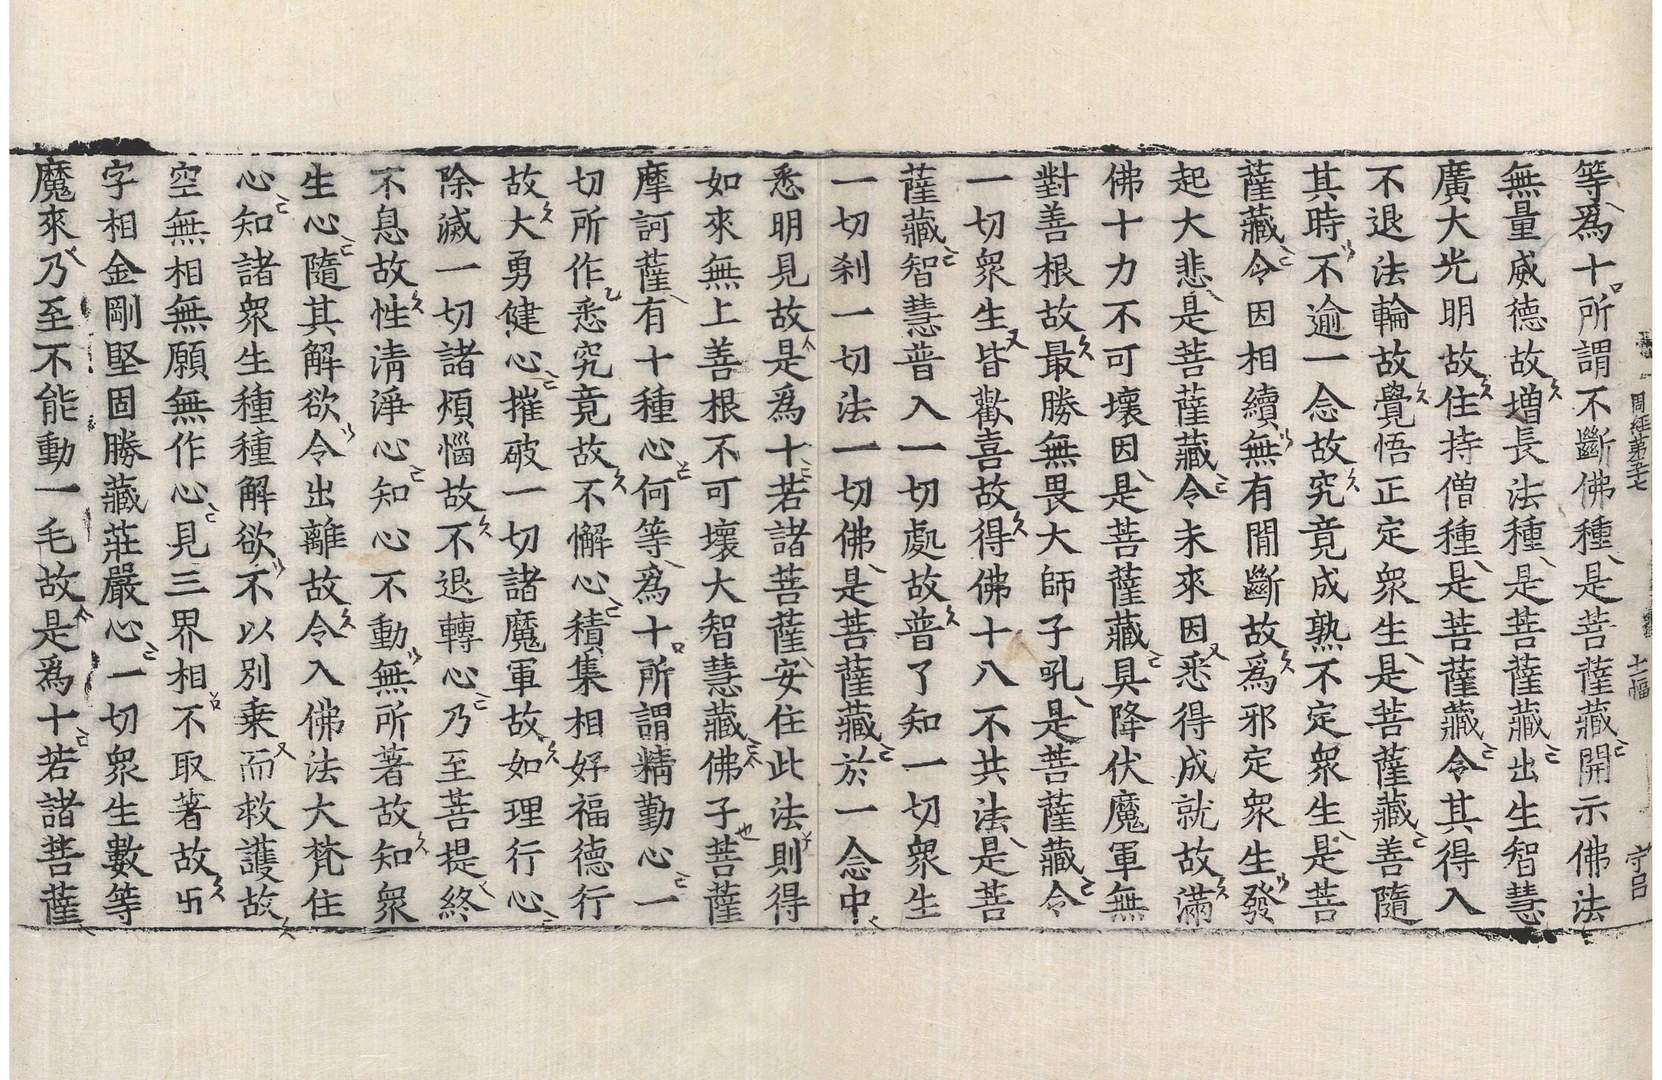 等爲十所謂不斷佛種是菩薩藏開示佛法
無量威德故增長法種是菩薩藏出生智慧
廣大光明故住持僧種是菩薩藏令其得入
不退法輪故覺悟正定衆生是菩薩藏善隨
其時不逾一念故究竟成熟不定衆生是菩
薩藏令因相續無有間斷故爲邪定衆生發
起大悲是菩薩藏令未來因悉得成就故滿
佛十力不可壞因是菩薩藏具降伏魔軍無
對善根故最勝無畏大師子吼是菩薩藏令
一切衆生皆歡喜故得佛十八不共法是菩
薩藏智慧普入一切處故普了知一切衆生
一切刹一切法一切佛是菩薩藏於一念中
悉明見故是爲十若諸菩薩安住此法則得
如來無上善根不可壞大智慧藏佛子菩薩
摩訶薩有十種心何等爲十所謂精勤心一
切所作悉究竟故不懈心積集相好福德行
故大勇健心摧破一切諸魔軍故如理行心
除滅一切諸煩惱故不退轉心乃至菩提終
不息故性淸淨心知心不動無所著故知衆
生心隨其解欲令出離故令入佛法大梵住
心知諸衆生種種解欲不以別乘而救護故
空無相無願無作心見三界相不取著故卐
字相金剛堅固勝藏莊嚴心一切衆生數等
魔來乃至不能動一毛故是爲十若諸菩薩